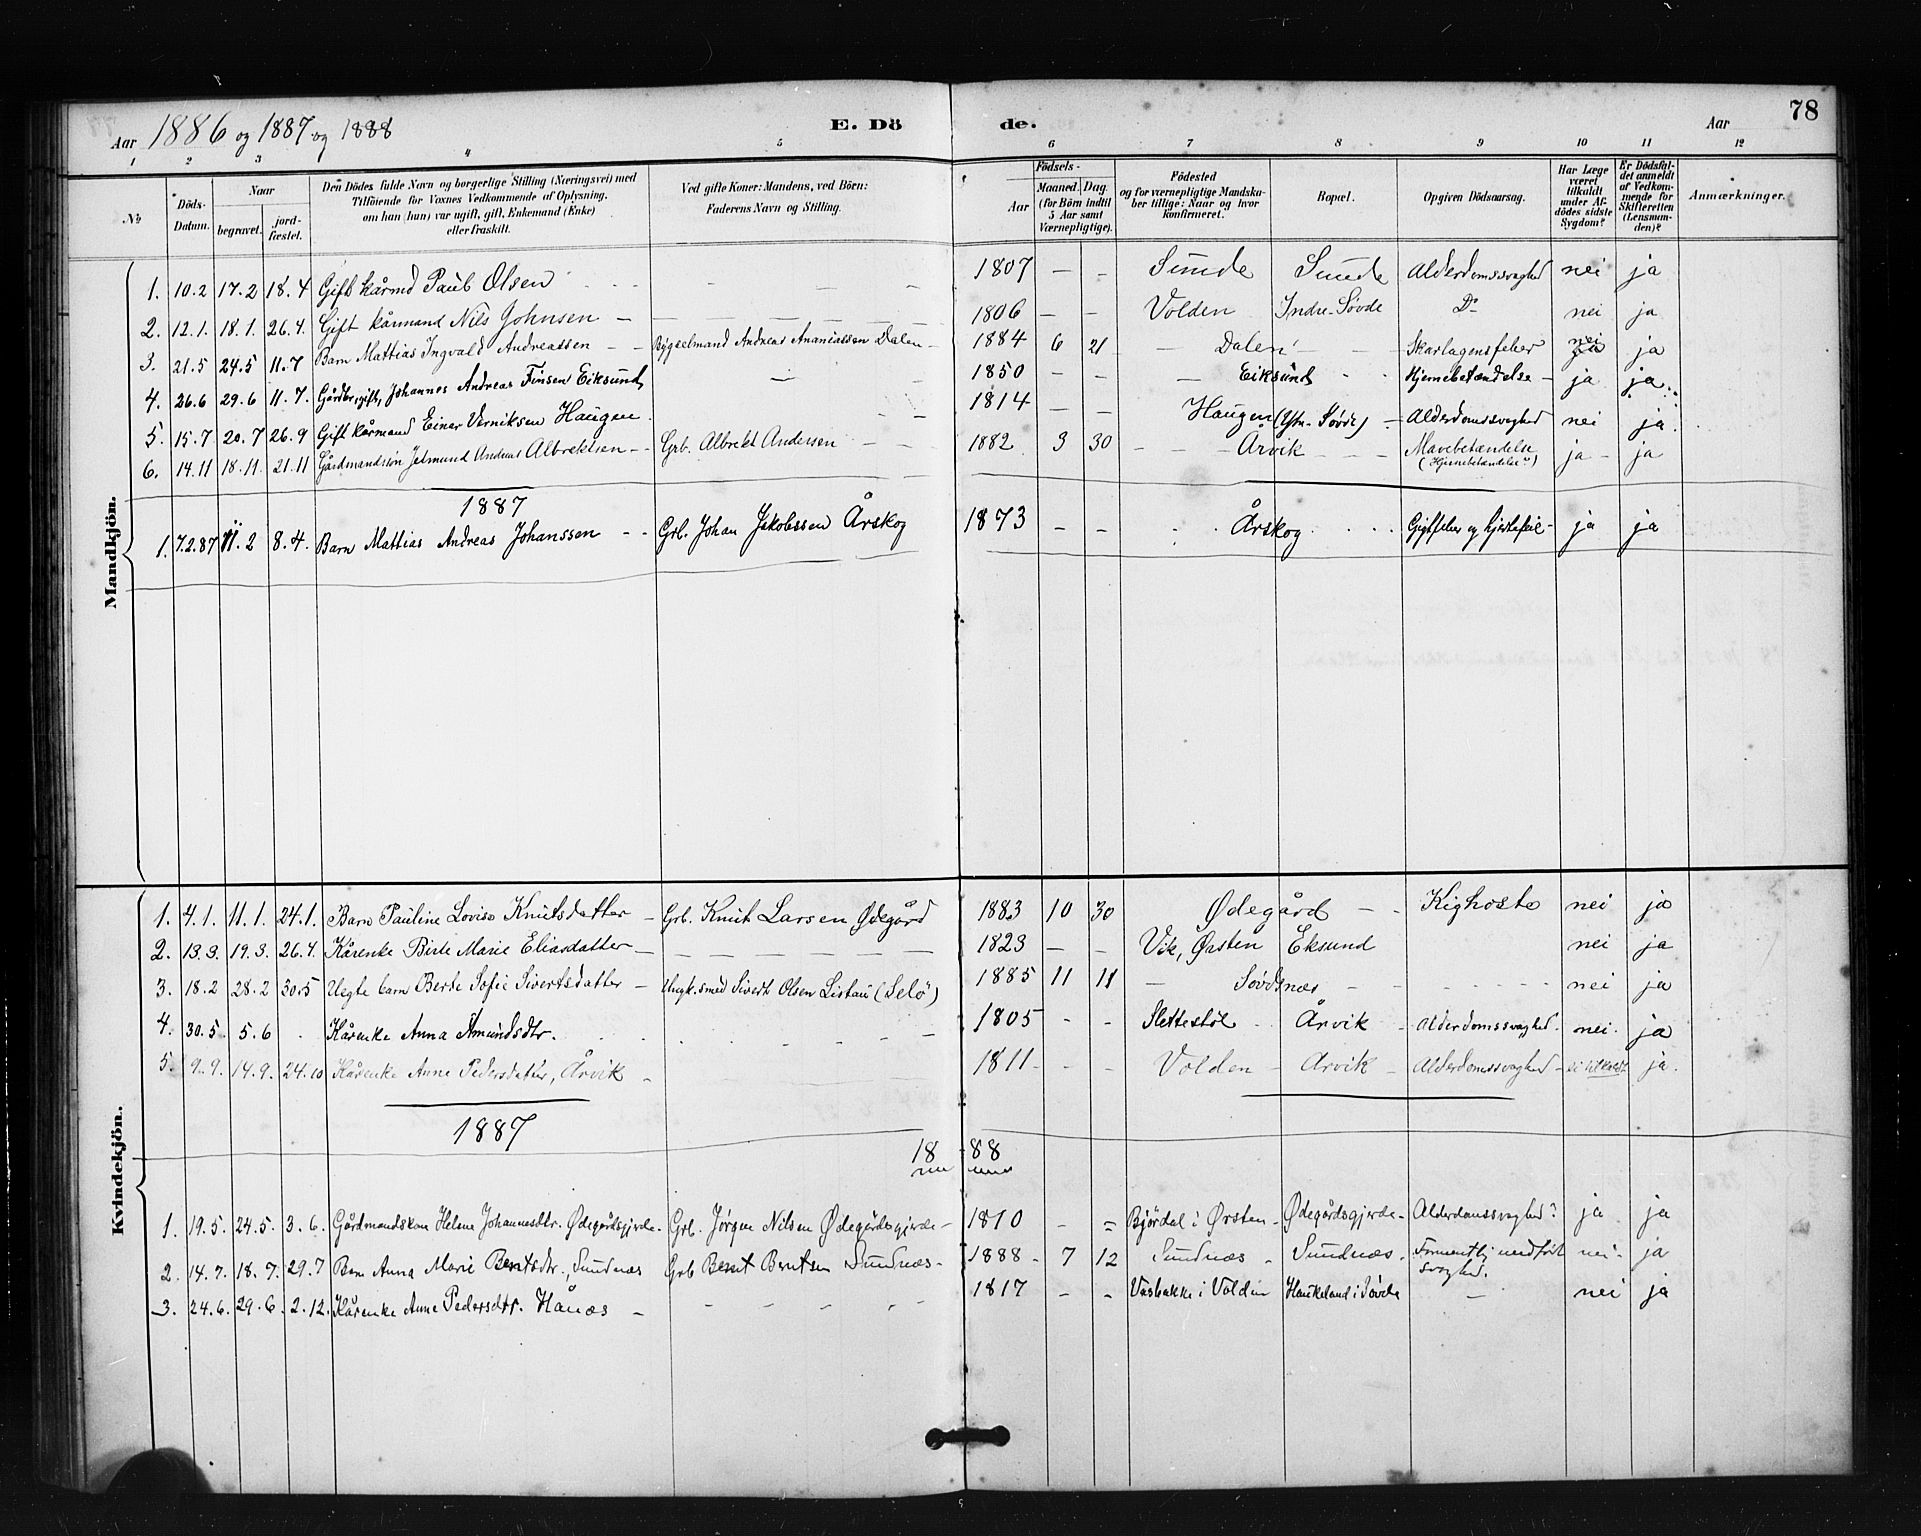 78
Aar 1886 og 1887 og 1888 E. Dö de. Aar
1 2 3 4 5 6 7 8 9 10 11 12
No Döds-Datum. Naar begravet. jord-fæstet. Den Dödes fulde Navn og borgerlige Stilling (Næringsvei) med Tilföiende for Voxnes Vedkommende af Oplysning, om han (hun) var ugift, gift, Enkemand (Enke) eller fraskilt. Ved gifte Koner: Mandens, ved Börn: Faderens Navn og Stilling. Födsels- Aar Maaned. Dag. (for Börn indtil 5 Aar samt Værnepligtige). Födested og for værnepligtige Mandskaber tillige: Naar og hvor konfirmeret. Bopæl. Opgiven Dödsaarsag. Har Læge været tilkaldt under Afdödes sidste Sygdom? Er Dödsfaldet anmeldt af Vedkommende for Skifteretten (Lensmanden)? Anmærkninger.
Mandkjön.
1. 10.2 17.2 18.4 Gift kårmd Paul Olsen 1807 — — Sunde Sunde Alderdomssvaghed nei ja
2. 12.1. 18.1. 26.4. Gift kårmand Nils Johnsen — 1806 — — Volden Indre-Søvde Do nei ja
3. 21.5 24.5 11.7 Barn Mattias Ingvald Andreassen — Bygselmand Andreas Ananiassen Dalen — 1884 6 21 — Dalen — Skarlagensfeber nei ja
4. 26.6 29.6 11.7. Gårdbr. gift, Johannes Andreas Finsen Eiksund — 1850 — — Eiksund Hjernebetændelse — ja ja
5. 15.7 20.7 26.9 Gift kårmand Einar Verniksen Haugen. 1814 — — Haugen (Ytre Søvde) — Alderdomssvaghed nei ja
6. 14.11 18.11. 21.11 Gårdmandssøn Jetmund Andreas Albrektsen — Grb. Albrekt Andersen — 1882 3 30 — Årvik — Mavebetændelse (Hjernebetændelse?) ja — ja
1887
1. 7.2.87 11.2 8.4. Barn Mattias Andreas Johanssen — Grb. Johan Jakobssen Årskog 1873 — — Årskog Gigtfeber og hjertefeil — ja ja
Kvindekjön.
1. 4.1. 11.1. 24.1. Barn Pauline Lovise Knutsdatter — Grb. Knut Larsen Ødegård 1883 10 30 Ødegård — Kighoste nei ja
2. 13.3. 19.3. 26.4. Kårenke Birte Marie Eliasdatter — 1823 — — Vik, Ørsten Eksund nei ja
3. 18.2 28.2 30.5 Uegte barn Berte Sofie Sivertsdatter — Ungk. smed Sivert Olsen Listau (Selö) 1885 11 11 — Søvdsnæs nei ja
4. 30.5. 5.6 Kårenke Anna Amundsdtr. 1805 - - Slettestøl Årvik — Alderdomssvaghed. nei. ja
5. 9.9. 14.9. 24.10 Kårenke Anne Pedersdatter, Årvik — 1811 - - Volden — Årvik — Alderdomssvaghed — ei tilkaldt ja.
1887
18 88
1. 19.5. 24.5. 3.6. Gårdmandskone Helene Johannesdtr. Ødegårdsgjerde. Grb. Jørgen Nilsen Ødegårdsgjerde — 1810 - = Bjørdal i Ørsten — Ødegårdsgjerde — Alderdomssvaghed? ja ja
2. 14.7. 18.7. 29.7 Barn Anna Marie Berntsdtr., Sundnæs Grb Bernt Berntsen Sundnæs — 1888 - 7 12 Sundnæs - Sundnæs. Formentlig medfødt svaghed. nei - ja
3. 24.6. 29.6. 2.12. Kårenke Anne Pedersdtr. Hånæs — 1817 - - Vasbakke i Volden Haukeland i Søvde — nei ja